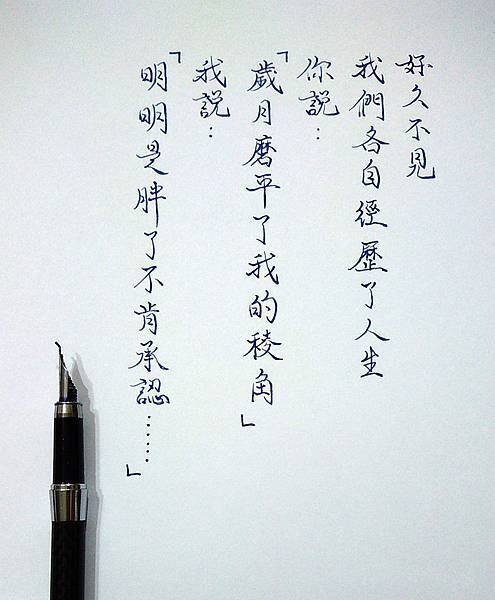 好久不見
我們各自經歷了人生
你說：
「歲月磨平了我的稜角」
我說：
「明明是胖了不肯承認……」